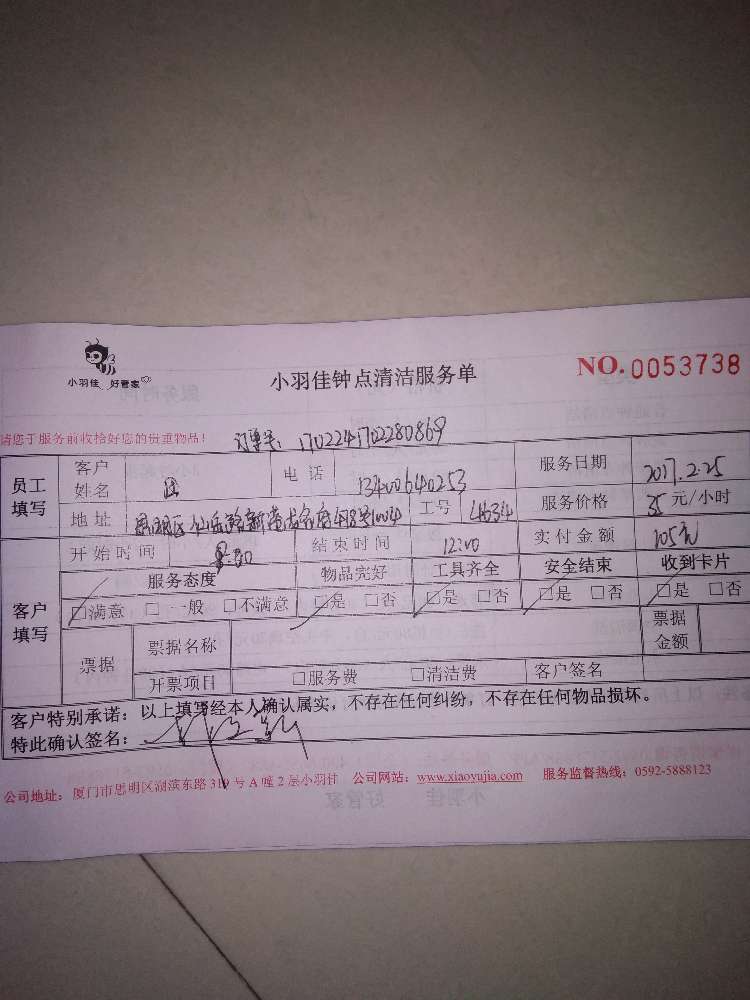 小羽佳 好管家
小羽佳钟点清洁服务单
NO.0053738
请您于服务前收拾好您的贵重物品!
订单号: 1702241702280869
员工填写 客户姓名 电话 13400640253 服务日期 2017.2.25
地址 工号 4634 服务价格 35元/小时
客户填写 开始时间 结束时间 12:00 实付金额 105元
服务态度 物品完好 工具齐全 安全结束 收到卡片
□满意 □一般 □不满意 □是 □否 □是 □否 □是 □否 □是 □否
票据 票据名称 票据金额
开票项目 □服务费 □清洁费 客户签名
客户特别承诺:以上填写经本人确认属实,不存在任何纠纷,不存在任何物品损坏。
特此确认签名:
公司地址:厦门市思明区湖滨东路319号A幢2层小羽佳 公司网站:www.xiaoyujia.com 服务监督热线:0592-5888123